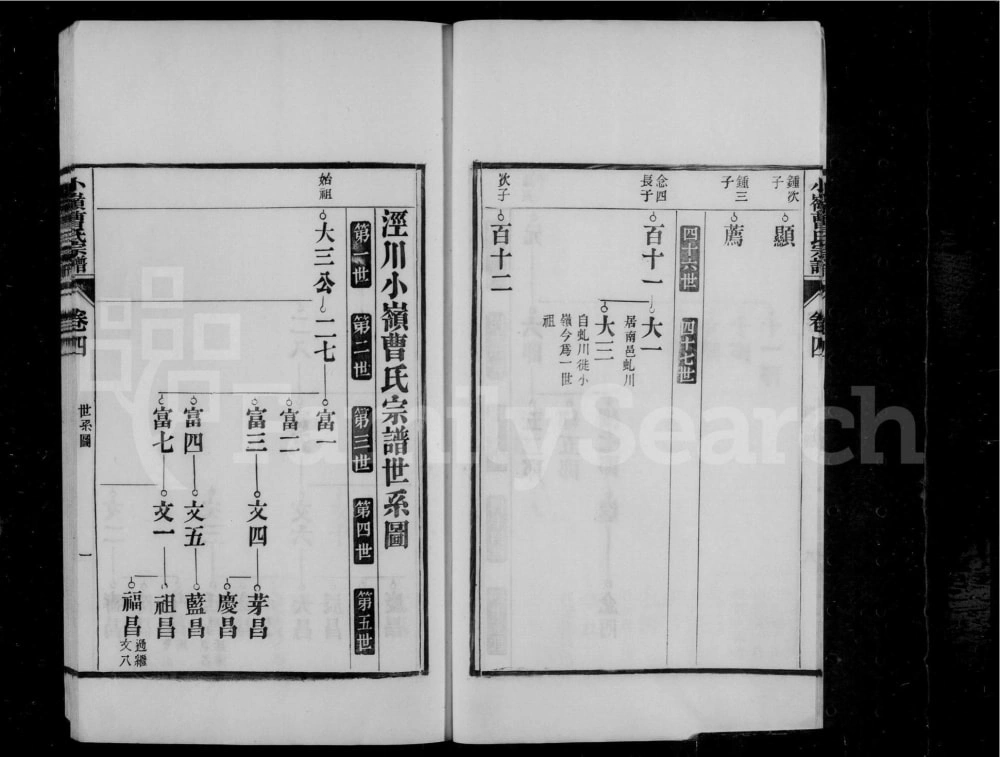 小嶺曹氏宗譜 卷四
鍾次子 顯
鍾三子 薦
四十六世 四十七世
念四長子 百十一 大一
居南邑虬川
大三
自虬川徙小
嶺今爲一世
祖
次子 百十二
涇川小嶺曹氏宗譜世系圖
第一世 第二世 第三世 第四世 第五世
始祖 大三公 二七 富一
富二
富三 文四 芽昌
慶昌
富四 文五 藍昌
富七 文一 祖昌
福昌 過繼文八
小嶺曹氏宗譜 卷四 世系圖 一
FamilySearch